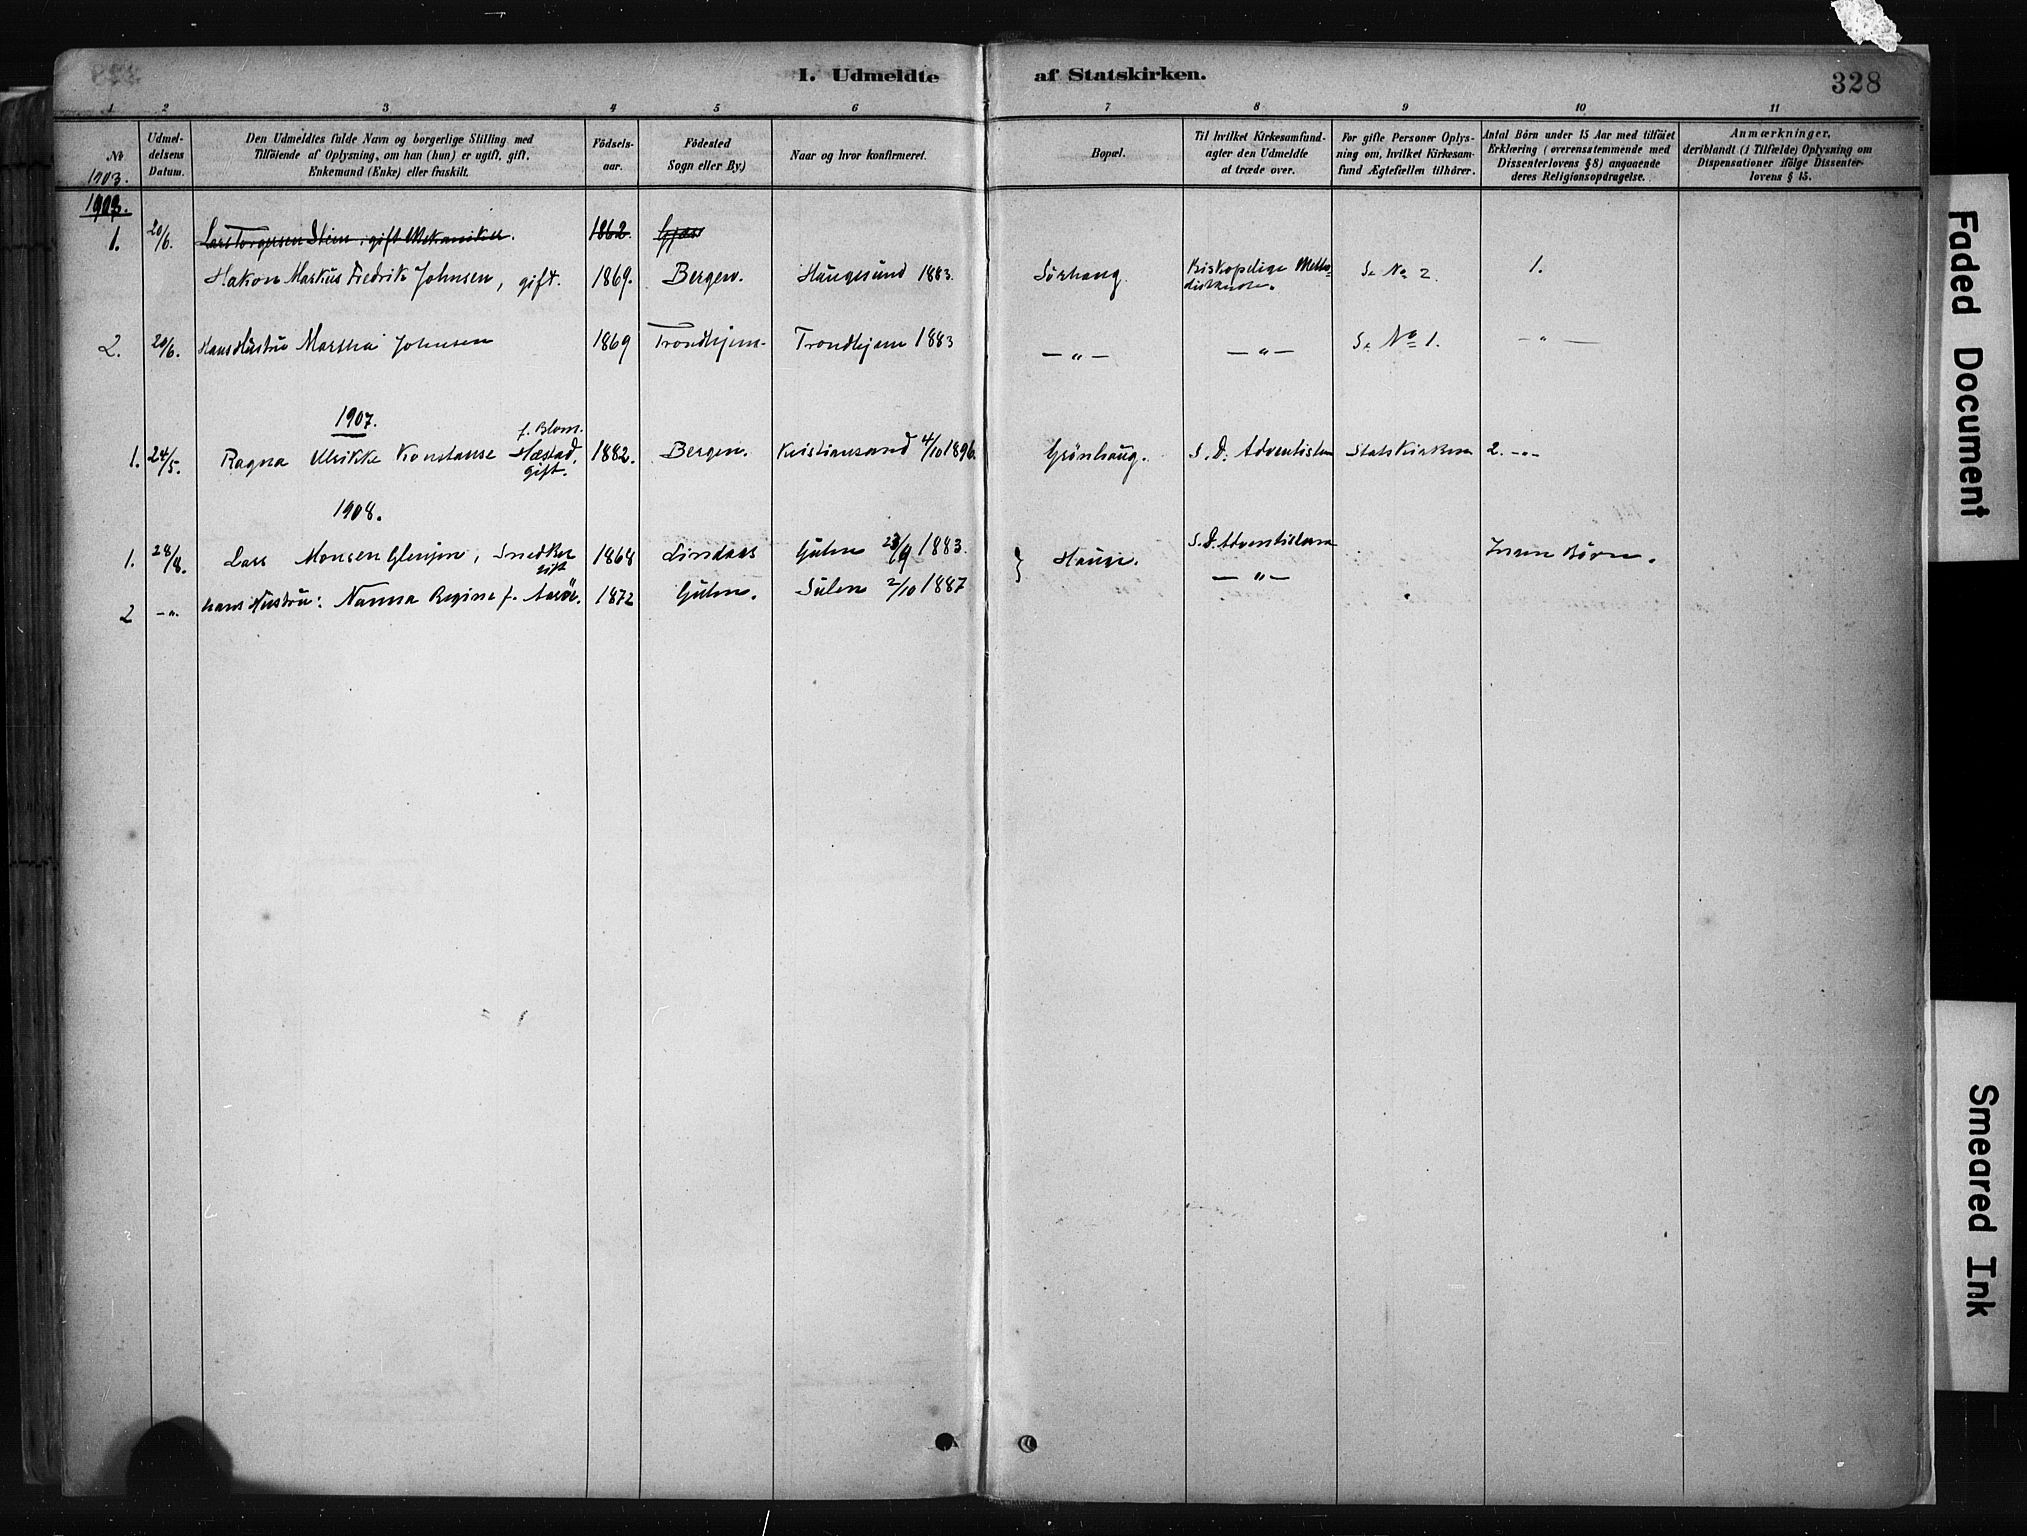 I. Udmeldte af Statskirken.
328
1 2 3 4 5 6 7 8 9 10 11
№
Udmel-
delsens
Datum.
Den Udmeldtes fulde Navn og borgerlige Stilling med
Tilföiende af Oplysning, om han (hun) er ugift, gift,
Enkemand (Enke) eller fraskilt.
Födsels-
aar.
Födested
Sogn eller By.)
Naar og hvor konfirmeret.
Bopæl.
Til hvilket Kirkesamfund-
agter den Udmeldte
at træde over.
For gifte Personer Oplys-
ning om, hvilket Kirkesam-
fund Ægtefællen tilhörer.
Antal Börn under 15 Aar med tilföiet
Erklæring (overensstemmende med
Dissenterlovens § 8) angaaende
deres Religionsopdragelse.
Anmærkninger,
deriblandt (i Tilfælde) Oplysning om
Dispensationer ifölge Dissenter-
lovens § 15.
1903.
1903.
1. 20/6. Lars Torgersen gift Mekaniker. 1862
Hakon Markus Fredrik Johnsen, gift. 1869. Bergen. Haugesund 1883. Sörhaug. Biskopelige Metho-
distkirke. Se No 2. 1.
2. 20/6. Hans Hustru Martha Johnsen 1869 Trondhjem Trondhjem 1883 — " — — " — Se No 1. — " —
1907.
f. Blom.
1. 24/5. Ragna Ulrikke Konstanse Hæstad, 1882. Bergen. Kristiansand 4/10 1896. Grönhaug. S. D. Adventisten Statskirken 2. -"-
gift.
1908.
1. 28/8. Lars Monsen Glenjen, Snedker 1868 Lindaas Gulen 23/9 1883. } Hauge. S. D. Adventisterne Ingen Börn.
gift
2 -"- hans Hustru: Nanna Regine f. 1872 Gulen. Sulen 2/10 1887 — " —
Faded Document
Smeared Ink